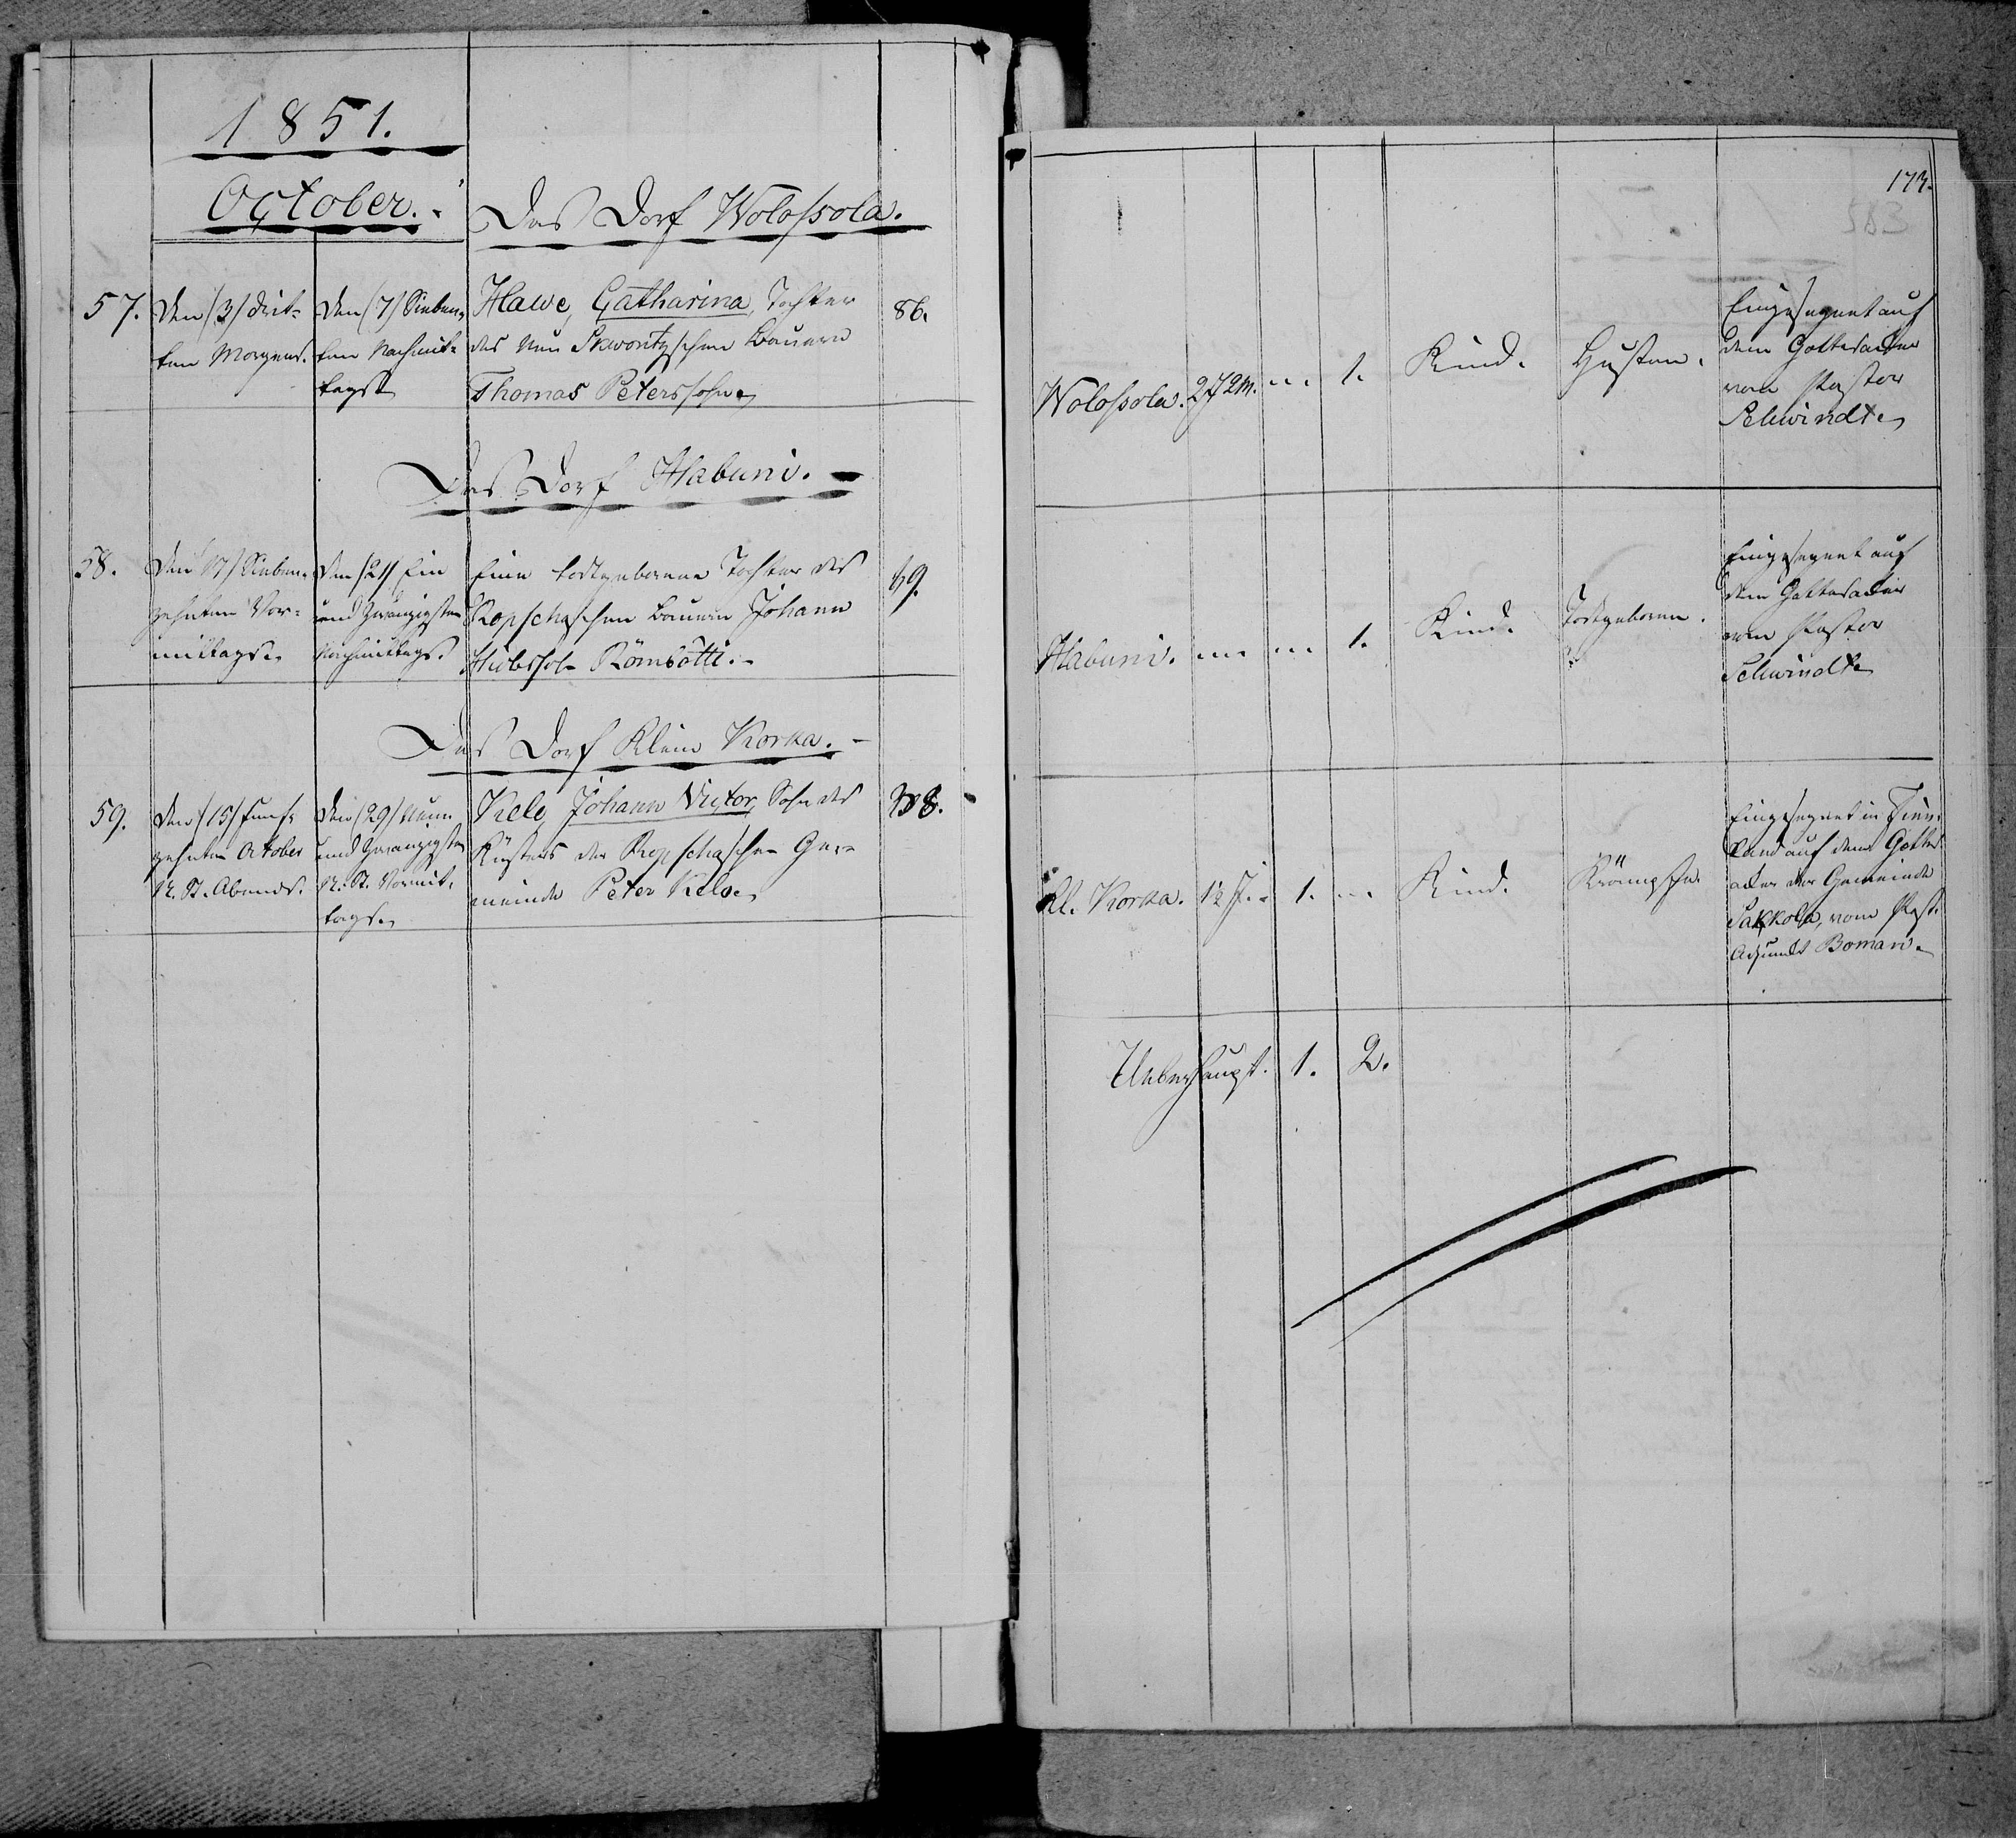 1851.
October.
Das Dorf Wolossola.
57.
Den (3) drit-
ten Morgens.
Den (7) Sieben-
ten Nachmit-
tags.
Hawe, Catharina, Tochter
des Neu Skworitzschen Bauern
Thomas Peterssohn.
86.
Das Dorf Habuni.
58.
Den (17) Sieben-
zehnten Vor-
mittags.
Den (21) Ein
und Zwanzigsten
Nachmittags.
Eine todtgeborene Tochter des
Ropschaschen Bauern Johann
Römbötti.
69.
Das Dorf Klein Korka.
59.
Den (15) Funf-
zehnten October
N. St. Abends.
Den (29) Neun
und Zwanzigsten
N. St. Vormit-
tags.
Kele, Johann Victor, Sohn des
Küsters der Ropschaschen Ge-
meinde Peter Kele.
38.
173.
583
Wolossola.
2 J 2 M.
1.
Kind.
Husten.
Eingesegnet auf
dem Gottesacker
vom Pastor
Schwindt.
Habuni.
1.
Kind.
Todtgeboren.
Eingesegnet auf
dem Gottesacker
vom Pastor
Schwindt.
Kl. Korka.
1½ J.
1.
Kind.
Krämpfe.
Eingesegnet in Finn-
land auf dem Gottes-
acker der Gemeinde
Sakkola, vom Past.
Adjunct Boman.
Ueberhaupt.
1.
2.